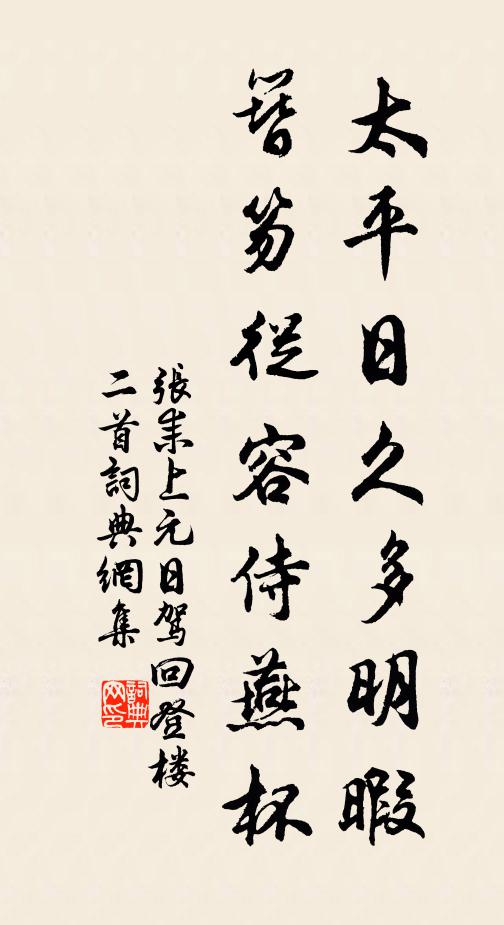 太平日久多明暇
簪笏從容侍燕杯
張耒上元日駕回登楼
二首詞典網集
詞典网印